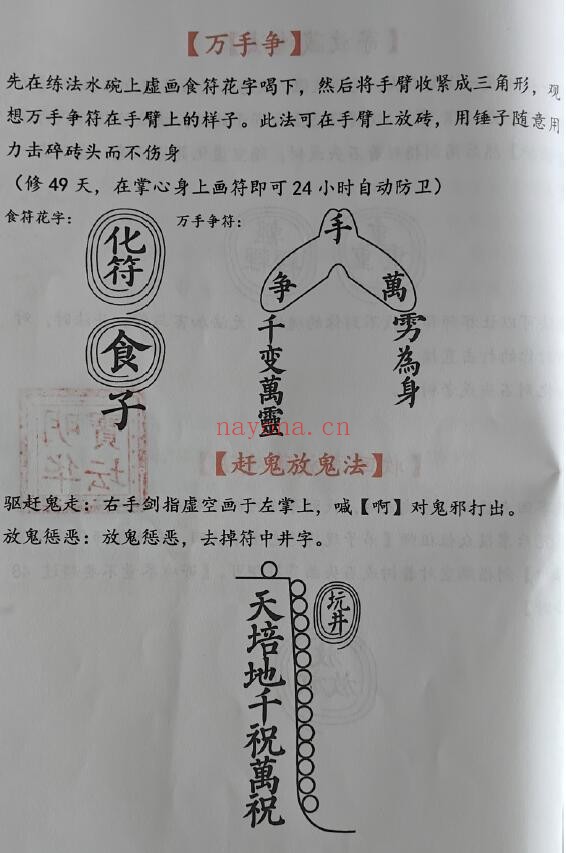 【万手争】
先在练法水碗上虚画食符花字喝下，然后将手臂收紧成三角形，观
想万手争符在手臂上的样子。此法可在手臂上放砖，用锤子随意用
力击碎砖头而不伤身
（修49天，在掌心身上画符即可24小时自动防卫）
食符花字：
化符
食
子
万手争符：
手
争
千变萬靈
萬
雳為身
nayona.cn
【赶鬼放鬼法】
驱赶鬼走：右手剑指虚空画于左掌上，喊【啊】对鬼邪打出。
放鬼惩恶：放鬼惩恶，去掉符中井字。
天培地千祝萬祝
坛井